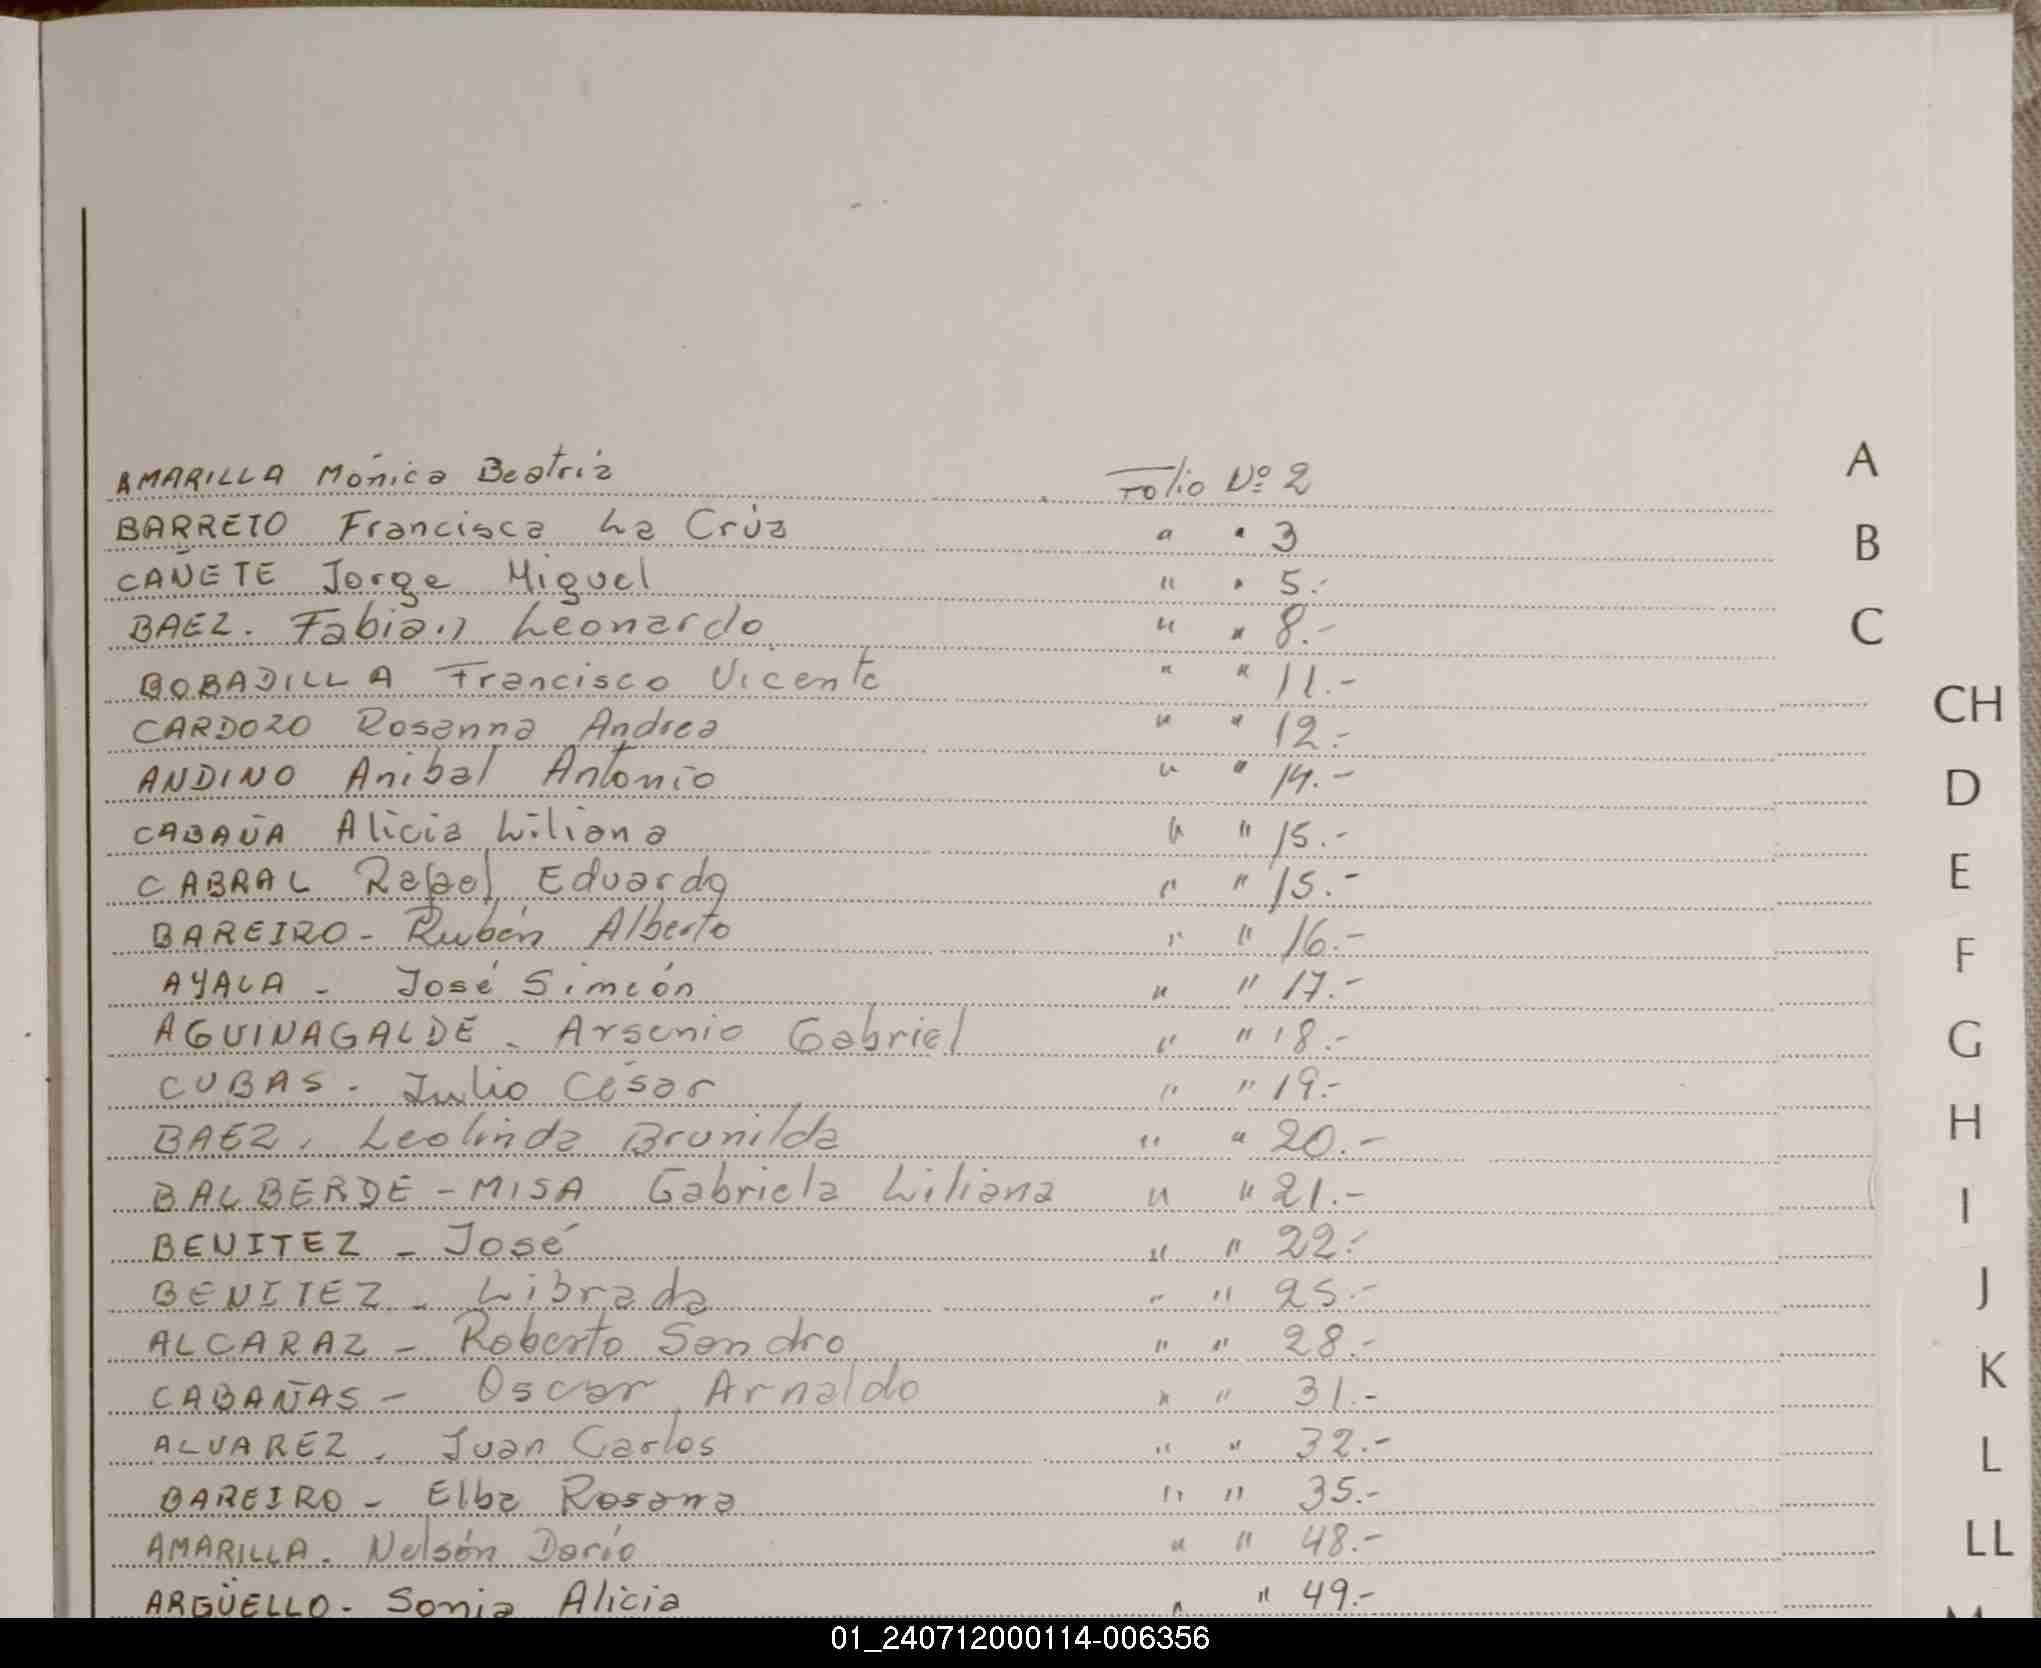 AMARILLA Mónica Beatriz Folio Nº 2 A
BARRETO Francisca La Crúz " " 3 B
CAÑETE Jorge Miguel " " 5.-
BAEZ. Fabian Leonardo " " 8.- C
BOBADILLA Francisco Vicente " " 11.- CH
CARDOZO Rosanna Andrea " " 12.-
ANDINO Anibal Antonio " " 14.- D
CABAÑA Alicia Liliana " " 15.-
CABRAL Rafael Eduardo " " 15.- E
BAREIRO - Rubén Alberto " " 16.- F
AYALA - José Simeón " " 17.-
AGUINAGALDE - Arsenio Gabriel " " 18.- G
CUBAS - Julio César " " 19.-
BAEZ. Leolinda Brunilda " " 20.- H
BALBERDE - MISA Gabriela Liliana " " 21.- I
BENITEZ - José " " 22.-
BENITEZ - Librada " " 25.- J
ALCARAZ - Roberto Sandro " " 28.-
CABAÑAS - Oscar Arnaldo " " 31.- K
ALVAREZ - Juan Carlos " " 32.- L
BAREIRO - Elba Rosana " " 35.-
AMARILLA. Nelsón Darío " " 48.- LL
ARGÜELLO - Sonia Alicia " " 49.-
01_240712000114-006356